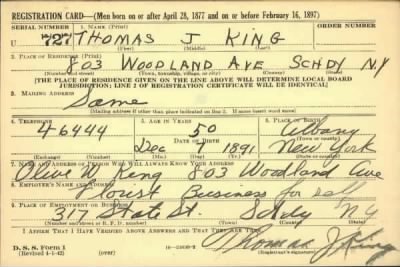 REGISTRATION CARD—(Men born on or after April 28, 1877 and on or before February 16, 1897)
SERIAL NUMBER 1. NAME (Print) ORDER NUMBER
U 727 THOMAS J KING
(First) (Middle) (Last)
2. PLACE OF RESIDENCE (Print)
803 WOODLAND AVE SCHDY N.Y
(Number and street) (Town, township, village, or city) (County) (State)
[THE PLACE OF RESIDENCE GIVEN ON THE LINE ABOVE WILL DETERMINE LOCAL BOARD
JURISDICTION; LINE 2 OF REGISTRATION CERTIFICATE WILL BE IDENTICAL]
3. MAILING ADDRESS
Same
[Mailing address if other than place indicated on line 2. If same insert word same]
4. TELEPHONE 5. AGE IN YEARS 6. PLACE OF BIRTH
46444 50 Albany
DATE OF BIRTH (Town or county)
Dec 7 1891 New York
(Exchange) (Number) (Mo.) (Day) (Yr.) (State or country)
7. NAME AND ADDRESS OF PERSON WHO WILL ALWAYS KNOW YOUR ADDRESS
Olive W King 803 Woodland Ave
8. EMPLOYER'S NAME AND ADDRESS
Florist Business for self
9. PLACE OF EMPLOYMENT OR BUSINESS
317 State St. Schdy N.Y
(Number and street or R. F. D. number) (Town) (County) (State)
I AFFIRM THAT I HAVE VERIFIED ABOVE ANSWERS AND THAT THEY ARE TRUE.
D. S. S. Form 1
(Revised 4-1-42) (over)
Thomas J King